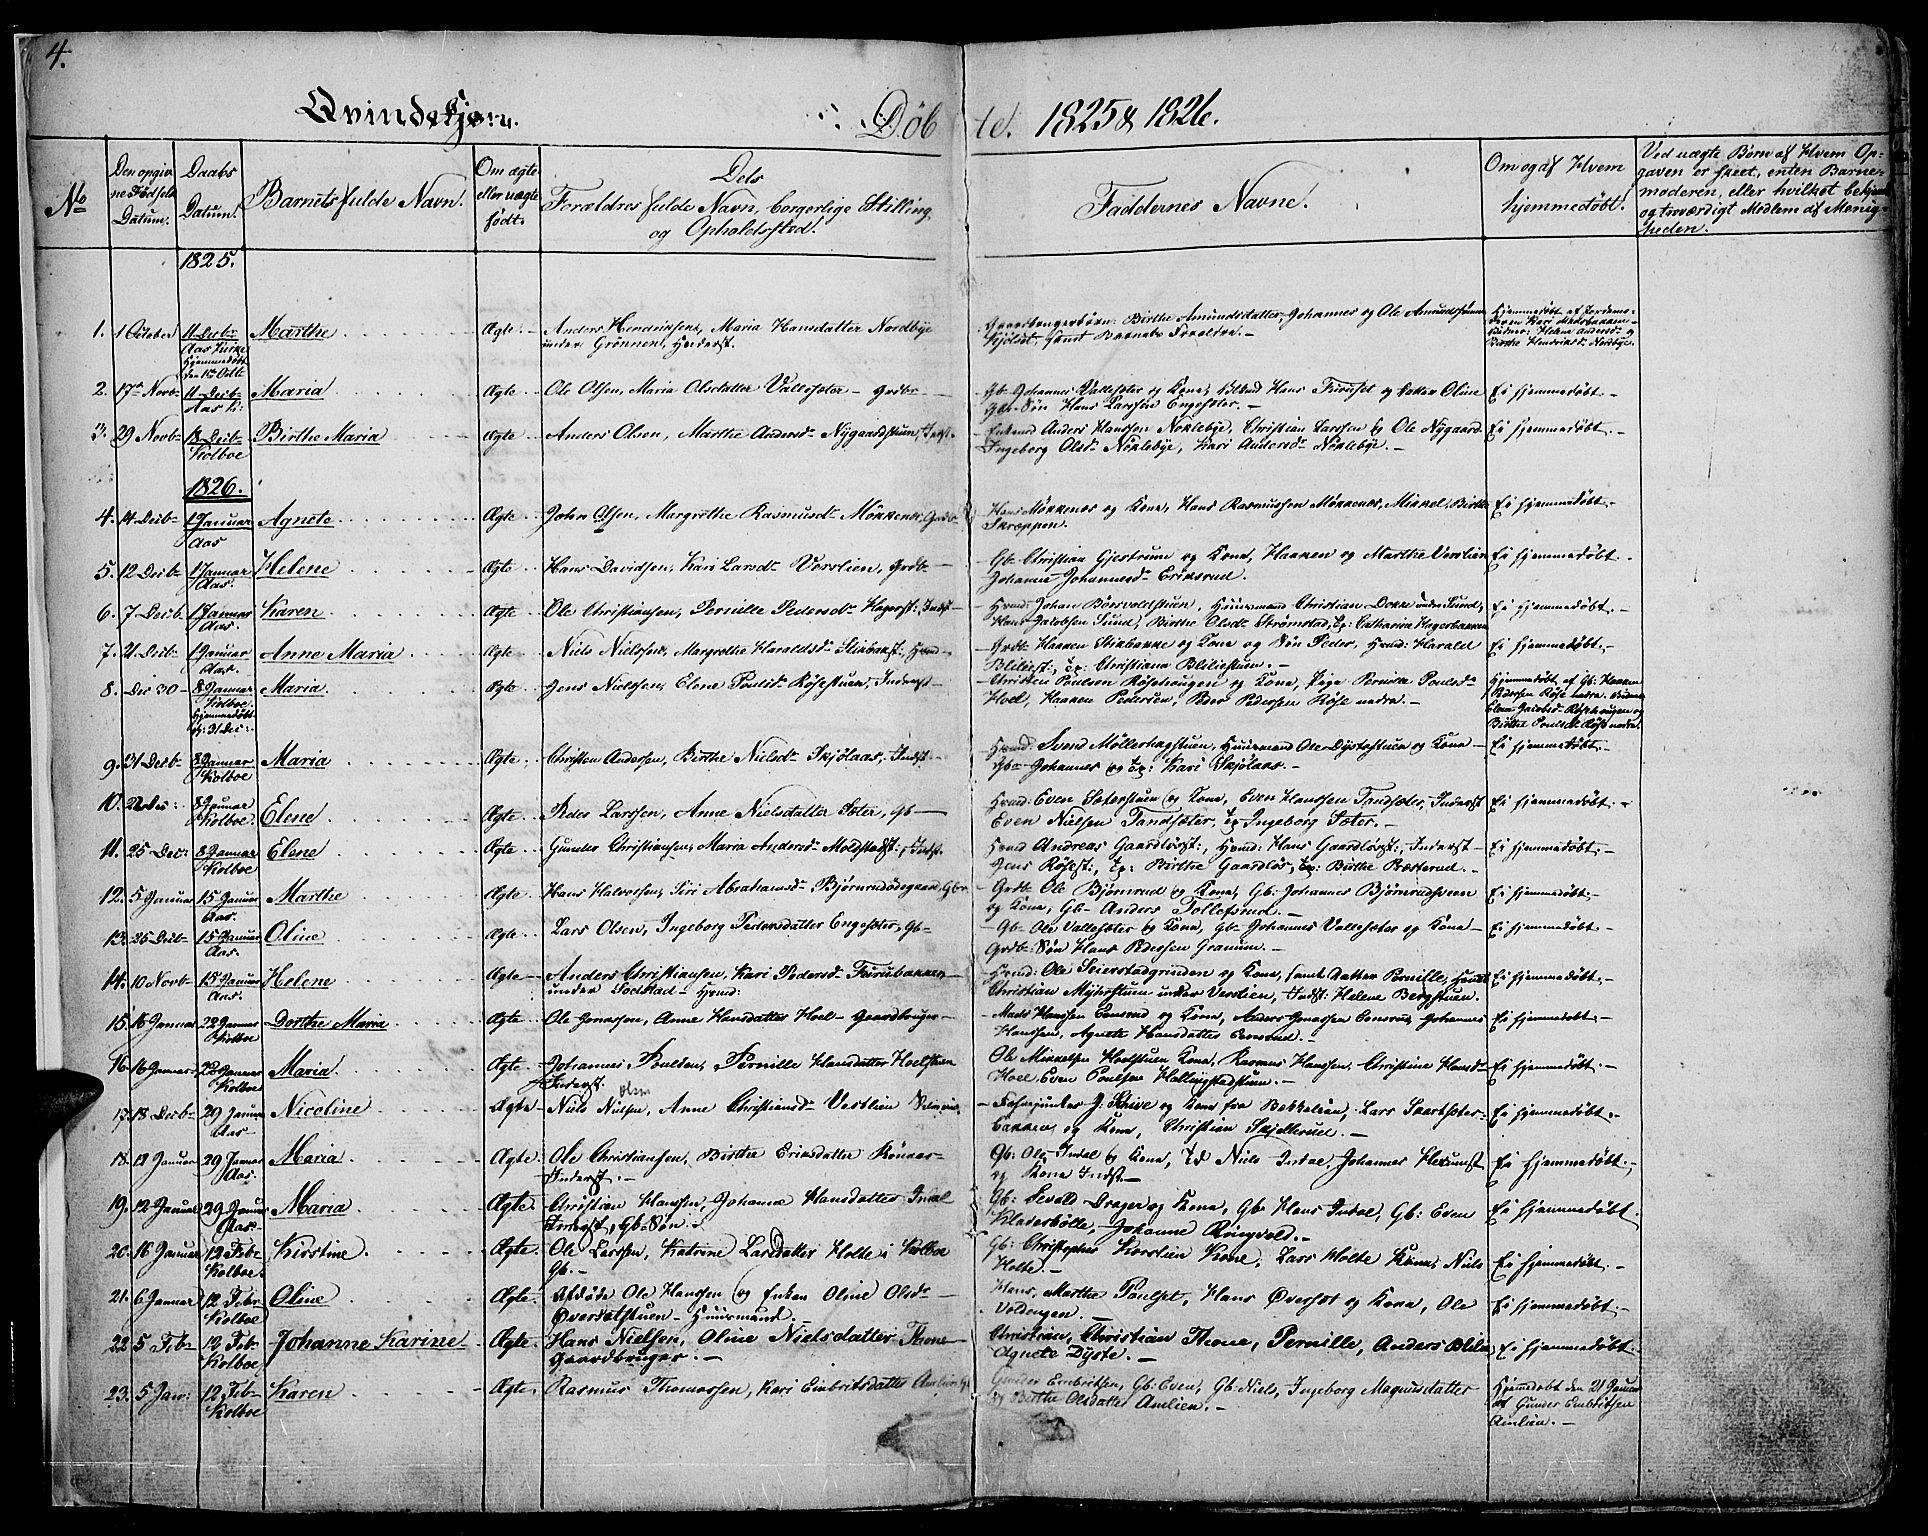 4.
Qvindekjøn.
Døbte. 1825 & 1826.
No
Den opgivne Fødsels Datum.
Daabs Datum.
Barnets fulde Navn.
Om ægte eller uægte født.
Dets Forældres fulde Navn, borgerlige Stilling, og Opholdssted.
Faddernes Navne.
Om og af Hvem hjemmedøbt.
Ved uægte Børn af Hvem Opgaven er skeet, enten Barnemoderen, eller hvilket bekjendt og troværdigt Medlem af Menigheden.
1825.
1. 1 October 11 Decbr Aas Kirke Hjemmedøbt den 1ste Octb Marthe Ægte Anders Hendriksens, Maria Hansdatter Nordbye under Grønnen, Inderst. Birthe Amundsdatter, Johannes og Ole Amundssønner samt Barnets Forældre. Hjemmedøbt af Helene Andersd og Birthe Hendriksd Nordbye.
2. 17 Novb 11 Decb Aas K: Maria Ægte Ole Olsen, Maria Olsdatter Vallesæter Grdbr Gb Johannes Vallesæter og Kone, Hans og Datter Oline Gbr Søn Hans Larssen Engesæter. Ei hjemmedøbt.
3. 29 Novb 18 Decb Kolboe Birthe Maria Ægte Anders Olsen, Marthe Andersd Nygaardstuen, Indst. Enkemd Anders Hanssen Nøklebye, Christian Larssen og Ole Nygaard Ingeborg Olsd Nøklebye, Kari Andersd Nøklebye. Ei hjemmedøbt.
1826.
4. 14 Decb 1 Januar Aas Agnete Ægte John Olsen, Margrethe Rasmusd Møkkenes, Hans Møkkenes og Kone, Hans Rasmussen Møkkenes, Mikkel, Birthe Skreppen. Ei hjemmedøbt.
5. 12 Decb 1 Januar Aas. Helene Ægte Hans Davidsen, Kari Larsd Verstien, Grdb Gb Christian Gjestrum og Kone, Haaken og Marthe Verstien Johanne Johannesd Eriksrud. Ei hjemmedøbt.
6. 7 Decb 1 Januar Aas. Karen Ægte Ole Christiansen, Pernille Pedersd Hagerst: Indst Hmd: Johan Børsvoldstuen, Huusmand Christian Dokke under Sund, Hans Jakobsen Sund, Birthe Olsd Strømstad, Catharina Hagerbakken Ei hjemmedøbt.
7. 21 Decb 1 Januar Aas. Anne Maria Ægte Niels Nielssen, Margrethe Haraldsd Stikbakst: Hmd Grdb Haaken Stikbakke og Kone og Søn Peder, Hmd: Harald Bliliest:, Christiane Bliliestuen. Ei hjemmedøbt.
8. Dec 30 8 Januar Kolboe Hjemmedøbt 31 Dec: Maria Ægte Jens Nielssen, Elene Poulsd Røsestuen, Inderst Christen Poulsen Røsehougen og Kone, Pige Pernille Poulsd Hoel, Haaken Pedersen, Peder Pedersen Røse nedre. Hjemmedøbt af Gb: Haaken Pedersen Røse nedre, Elene Jacobsd Røsehougen og Birthe Poulsd Røse nedre.
9. 21 Decb 8 Januar Kolboe Maria Ægte Christen Andersen, Birthe Nielsd Skjølaas, Indst. Hmd: Svend Møllerhagstuen, Huusmand Ole Dystestuen og Kone Johannes og Kari Skjølaas. Ei hjemmedøbt.
10. 22 Dec: 8 Januar Kolboe. Elene Ægte Peder Larssen, Anne Nielsdatter Sæter, Gb Hmd: Even Sæterstuen og Kone, Even Hanssen Tandsæter, Inderst Even Nielsen Tandsæter, Ingeborg Sæter. Ei hjemmedøbt.
11. 25 Dec: 8 Januar Kolboe Elene Ægte Gunder Christiansen, Maria Andersd Moldstadst:, Indst. Hmd Andreas Gaardløst:, Hmd: Hans Gaardløst:, Inderst Jens Røsest:, Birthe Gaardløs, Birthe Præsterud. Ei hjemmedøbt.
12. 5 Januar 15 Januar Aas. Marthe Ægte Hans Halvorsen, Siri Abrahamsd Bjørnrudødegaard, Gbr Grdb Ole Bjørnrud og Kone, Gb: Johannes Bjørnrudsveen og Kone, Gb Anders Tollefsrud. Ei hjemmedøbt.
13. 26 Decb 15 Januar Aas. Oline Ægte Lars Olsen, Ingeborg Pedersdatter Engesæter, Gb Gb Ole Vallesæter og Kone, Gb Johannes Vallesæter og Kone Grdb: Søn Hans Pedersen Granum. Ei hjemmedøbt.
14. 10 Novb 15 Januar Aas. Helene Ægte Anders Christiansen, Kari Pedersd Furubakken under Sodstad Hmd: Hmd: Ole Seierstadgrinden og Kone, samt Datter Pernille, Christian Myhrstuen under Verstien, Indst: Helene Bergstuen. Ei hjemmedøbt.
15. 16 Januar 22 Januar Kolboe Dorthe Maria Ægte Ole Jonassen, Anne Hansdatter Hoel Gaardbruger Mads Hanssen Evensrud og Kone, Anders Jonassen, Johannes Hanssen, Agnete Hansdatter Evensrud. Ei hjemmedøbt.
16. 16 Januar 22 Januar Kolboe Maria. Ægte Johannes Poulsen, Pernille Hansdatter Hoelstuen Inderst. Ole Mikkelsen Hoelstuen Kone, Rasmus Hanssen, Christine Hansd Hoel, Even Poulsen Hallingstadstuen. Ei hjemmedøbt.
17. 18 Decb 29 Januar Aas Nicoline Ægte Niels Nielsen Olsen, Anne Christiansd Vestlien J. Schive og Kone fra Bekkelien, Lars Svartsæterbakken og Kone, Christian Skjelbrued. Ei hjemmedøbt.
18. 13 Januar 29 Januar Aas. Maria Ægte Ole Christiansen, Birthe Eriksdatter Inderst. Gb: Ole Indal og Kone, Niels Indal, Johannes og Kone Indst. Ei hjemmedøbt.
19. 12 Januar 29 Januar Aas. Maria Ægte Christian Hanssen, Johanne Hansdatter Indal Inderst, Gb Søn. Gb: Sevald Drager og Kone, Gb Hans Indal, Gb: Even Kladerbølle, Johanne Ringvold. Ei hjemmedøbt.
20. 16 Januar 12 Feb Kolboe Kirstine. Ægte. Ole Larssen, Katrine Larsdatter Holte i Kolboe Gb. Gb: Christopher Korslien Kone, Lars Holte Kone, Niels Holte. Ei hjemmedøbt.
21. 6 Januar 12 Febr Kolboe Oline Ægte. Afdøde Ole Hanssen og Enken Oline Olsd Øversætstuen Huusmand. Hans, Marthe Poulset, Hans Øversæt og Kone, Ole Voldengen. Ei hjemmedøbt.
22. 5 Feb 12 Feb Kolboe Johanne Karine Ægte. Hans Nielsen, Oline Nielsdatter Thone Gaardbruger. Christian, Christian Thone, Pernille, Anders Blilie, Agnete Dyste. Ei hjemmedøbt.
23. 5 Jan: 12 Feb Kolboe Karen Ægte. Rasmus Thomassen, Kari Embritsdatter Amlien Gunder Embritsen, Gb: Even, Gb: Niels, Ingeborg Magnusdatter og Birthe Olsdatter Amlien. Hjemdøbt den 21 Januar af Gunder Embritsen Amlien.